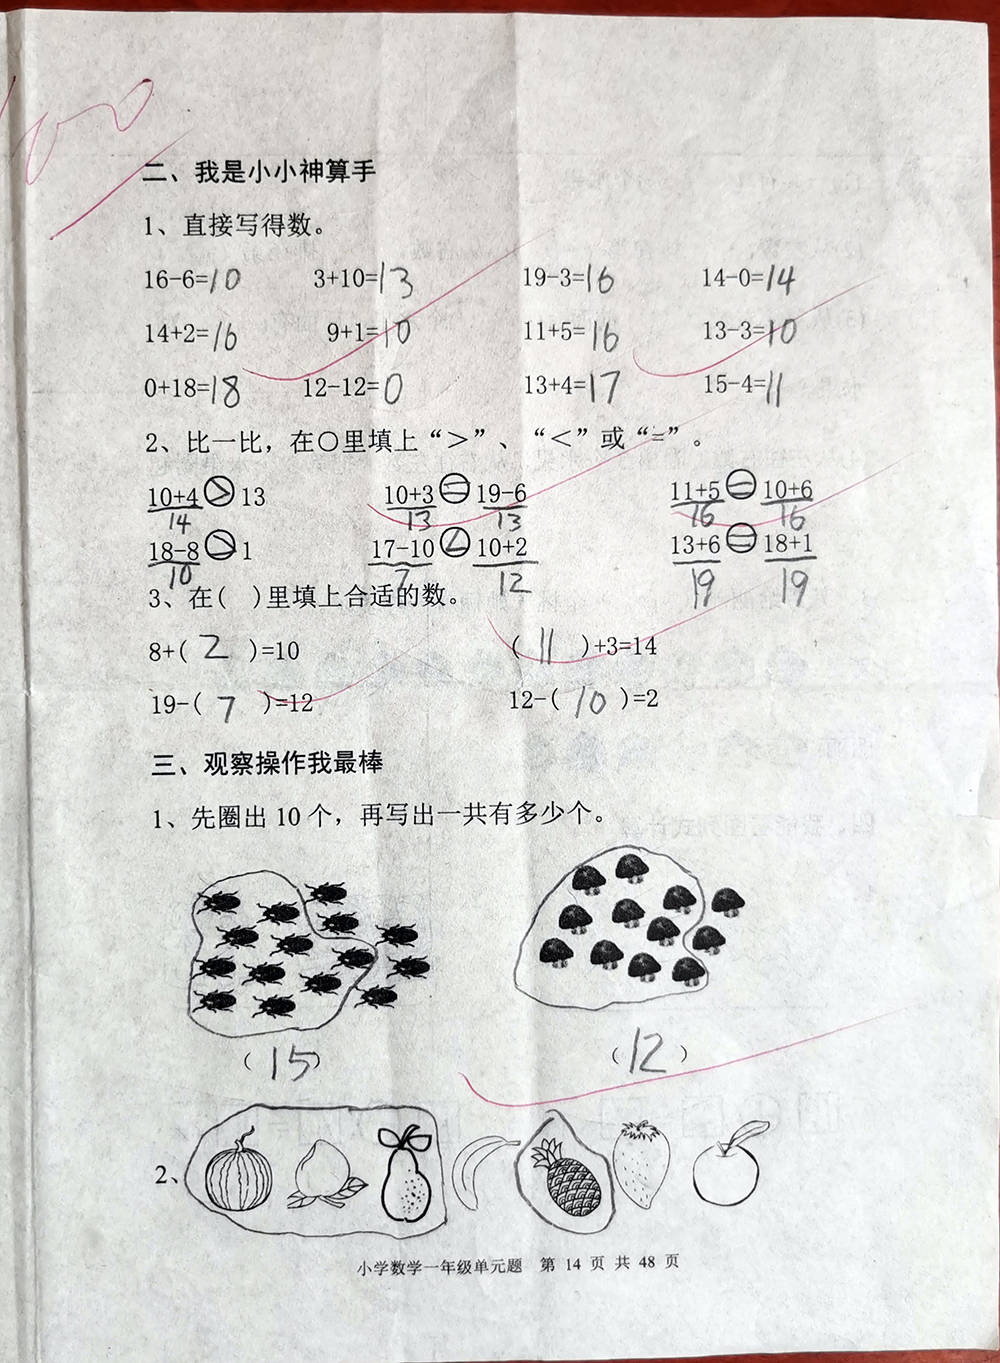 100
二、我是小小神算手
1、直接写得数。
16-6=10 3+10=13 19-3=16 14-0=14
14+2=16 9+1=10 11+5=16 13-3=10
0+18=18 12-12=0 13+4=17 15-4=11
2、比一比，在○里填上“＞”、“＜”或“=”。
10+4>13 10+3=19-6 11+5=10+6
14 13 13 16 16
18-8>1 17-10<10+2 13+6=18+1
10 7 12 19 19
3、在( )里填上合适的数。
8+( 2 )=10 ( 11 )+3=14
19-( 7 )=12 12-( 10 )=2
三、观察操作我最棒
1、先圈出 10 个，再写出一共有多少个。
（15） （12）
2、
小学数学一年级单元题 第 14 页 共 48 页